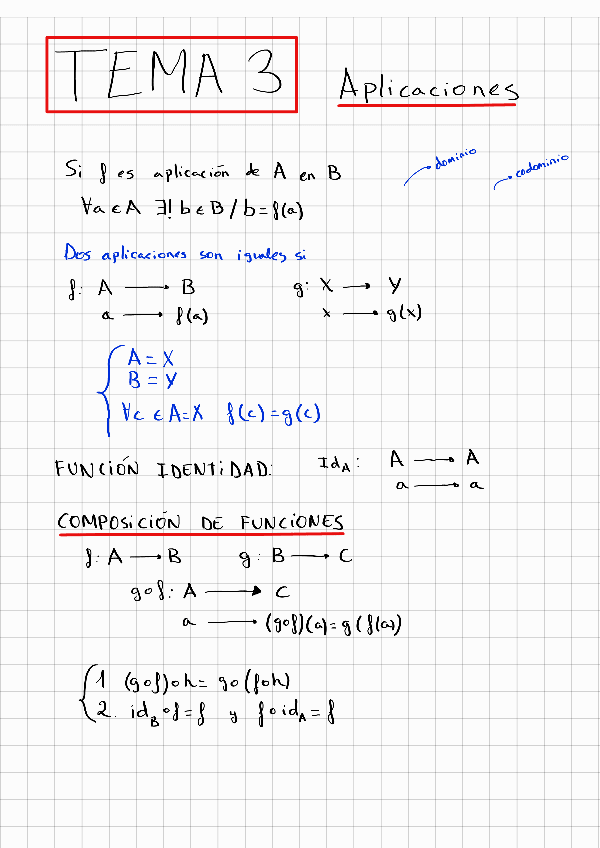 TEMA 3
Aplicaciones
Si f es aplicación de A en B
dominio
codominio
∀a ∈ A ∃! b ∈ B / b = f(a)
Dos aplicaciones son iguales si
f: A → B g: X → Y
a → f(a) x → g(x)
{ A = X
B = Y
∀c ∈ A = X f(c) = g(c)
FUNCIÓN IDENTIDAD: Id_A: A → A
a → a
COMPOSICIÓN DE FUNCIONES
f: A → B g: B → C
g∘f: A → C
a → (g∘f)(a) = g(f(a))
{ 1 (g∘f)∘h = g∘(f∘h)
2. id_B∘f = f y f∘id_A = f